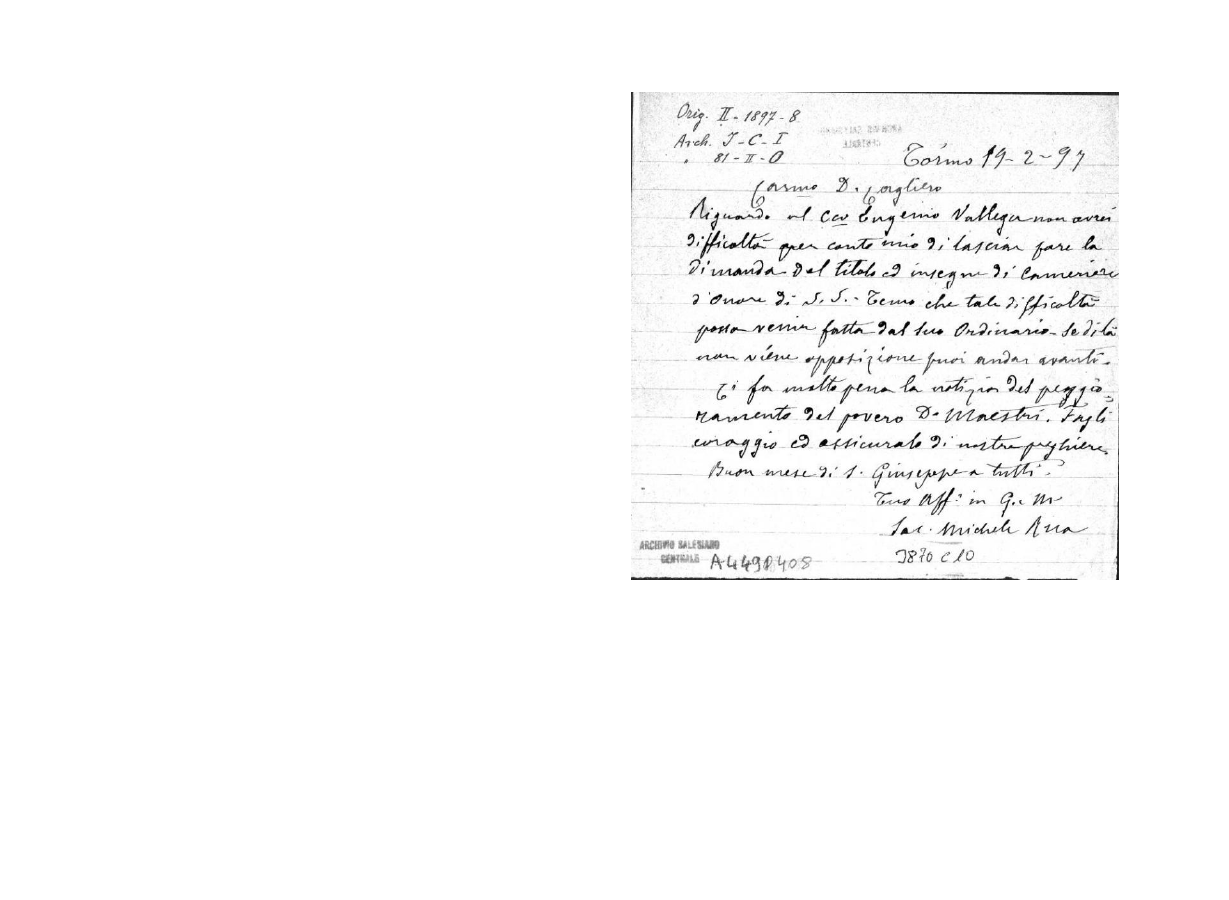 Orig. II - 1897 - 8
Arch. I - C - I
" 81 - II - O
Torino 19 - 2 - 97
Carmo D. Cagliero
Riguardo al Cav Eugenio Vallega non avrei
difficoltà per conto mio di lasciar fare la
dimanda del titolo ed insegne di Cameriere
d'onore di S. S. - Temo che tale difficoltà
possa venir fatta dal suo Ordinario - Se di là
non viene opposizione puoi andar avanti.
Ci fa molta pena la notizia del peggio-
ramento del povero D. Maestri. Fagli
coraggio ed assicuralo di nostre preghiere.
Buon mese di S. Giuseppe a tutti.
Tuo Aff.° in G. e M
Sac. Michele Rua
ARCHIVIO SALESIANO
CENTRALE A4490408
3870 C 10